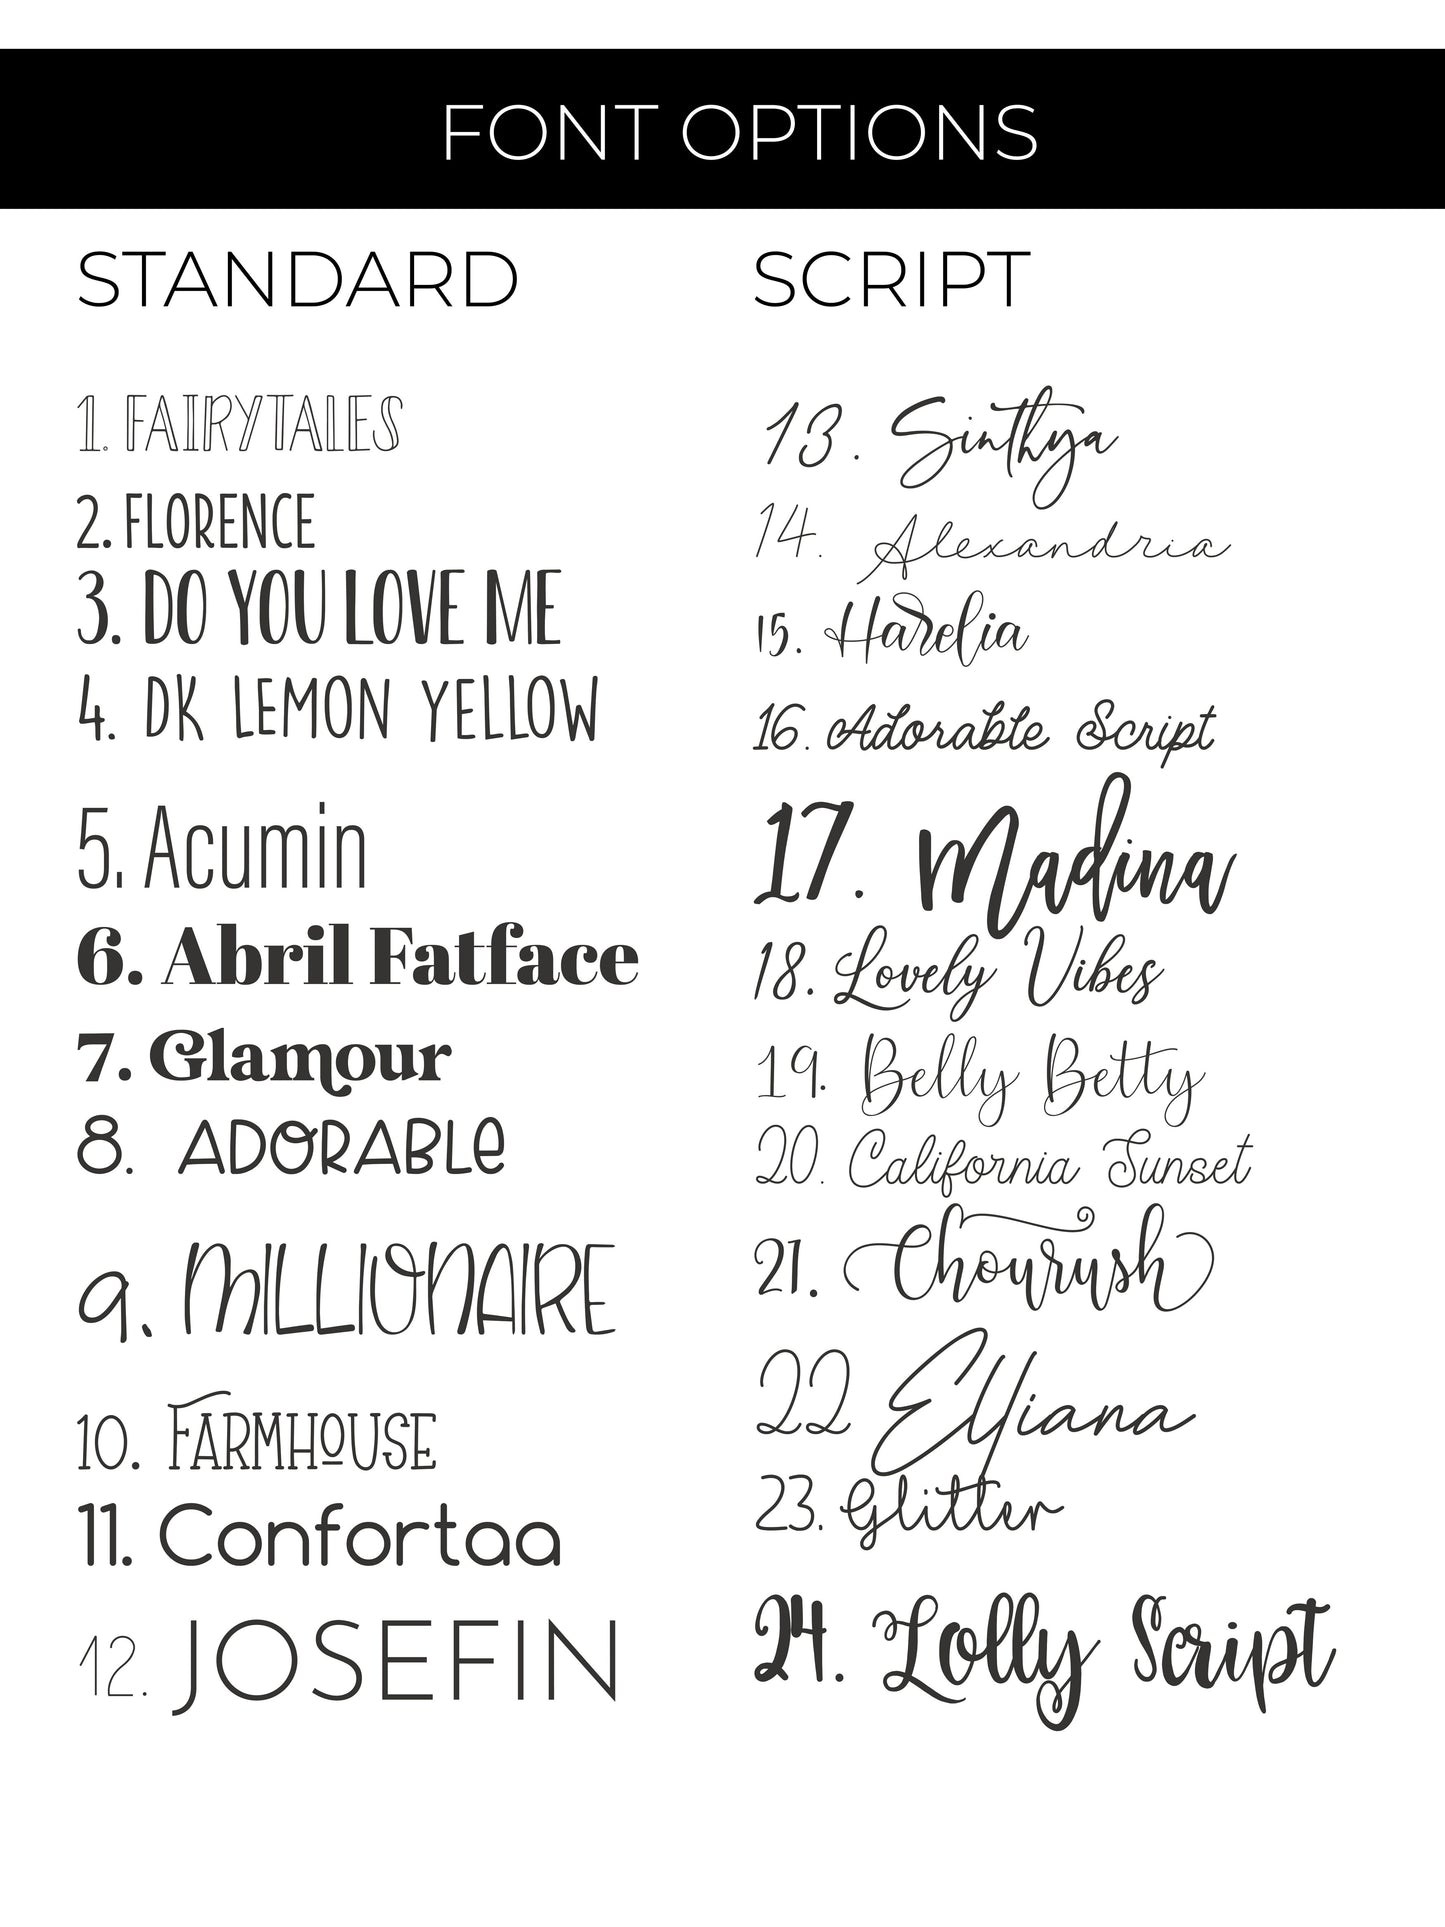 FONT OPTIONS
STANDARD
1. FAIRYTALES
2. FLORENCE
3. DO YOU LOVE ME
4. DK LEMON YELLOW
5. Acumin
6. Abril Fatface
7. Glamour
8. ADORABLe
9. MILLIONAIRE
10. FARMHOUSE
11. Confortaa
12. JOSEFIN
SCRIPT
13. Sinthya
14. Alexandria
15. Harelia
16. Adorable Script
17. Madina
18. Lovely Vibes
19. Belly Betty
20. California Sunset
21. Chourush
22 Elliana
23. Glitter
24. Lolly Script